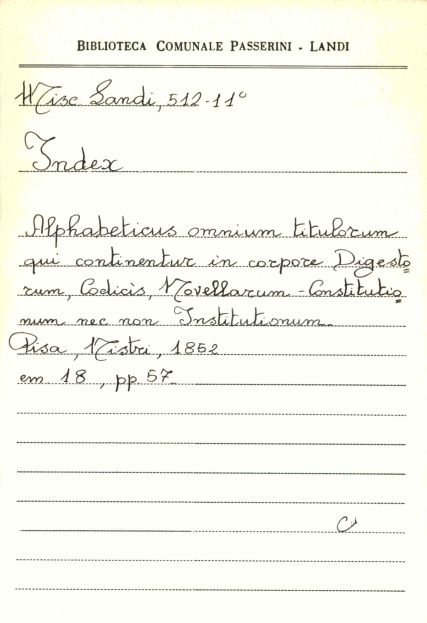 BIBLIOTECA COMUNALE PASSERINI - LANDI
Misc Landi, 512-11°
Index
Alphabeticus omnium titulorum
qui continentur in corpore Digesto=
rum, Codicis, Novellarum - Constitutio=
num nec non Institutionum
Pisa, Nistri, 1852
em 18, pp. 57